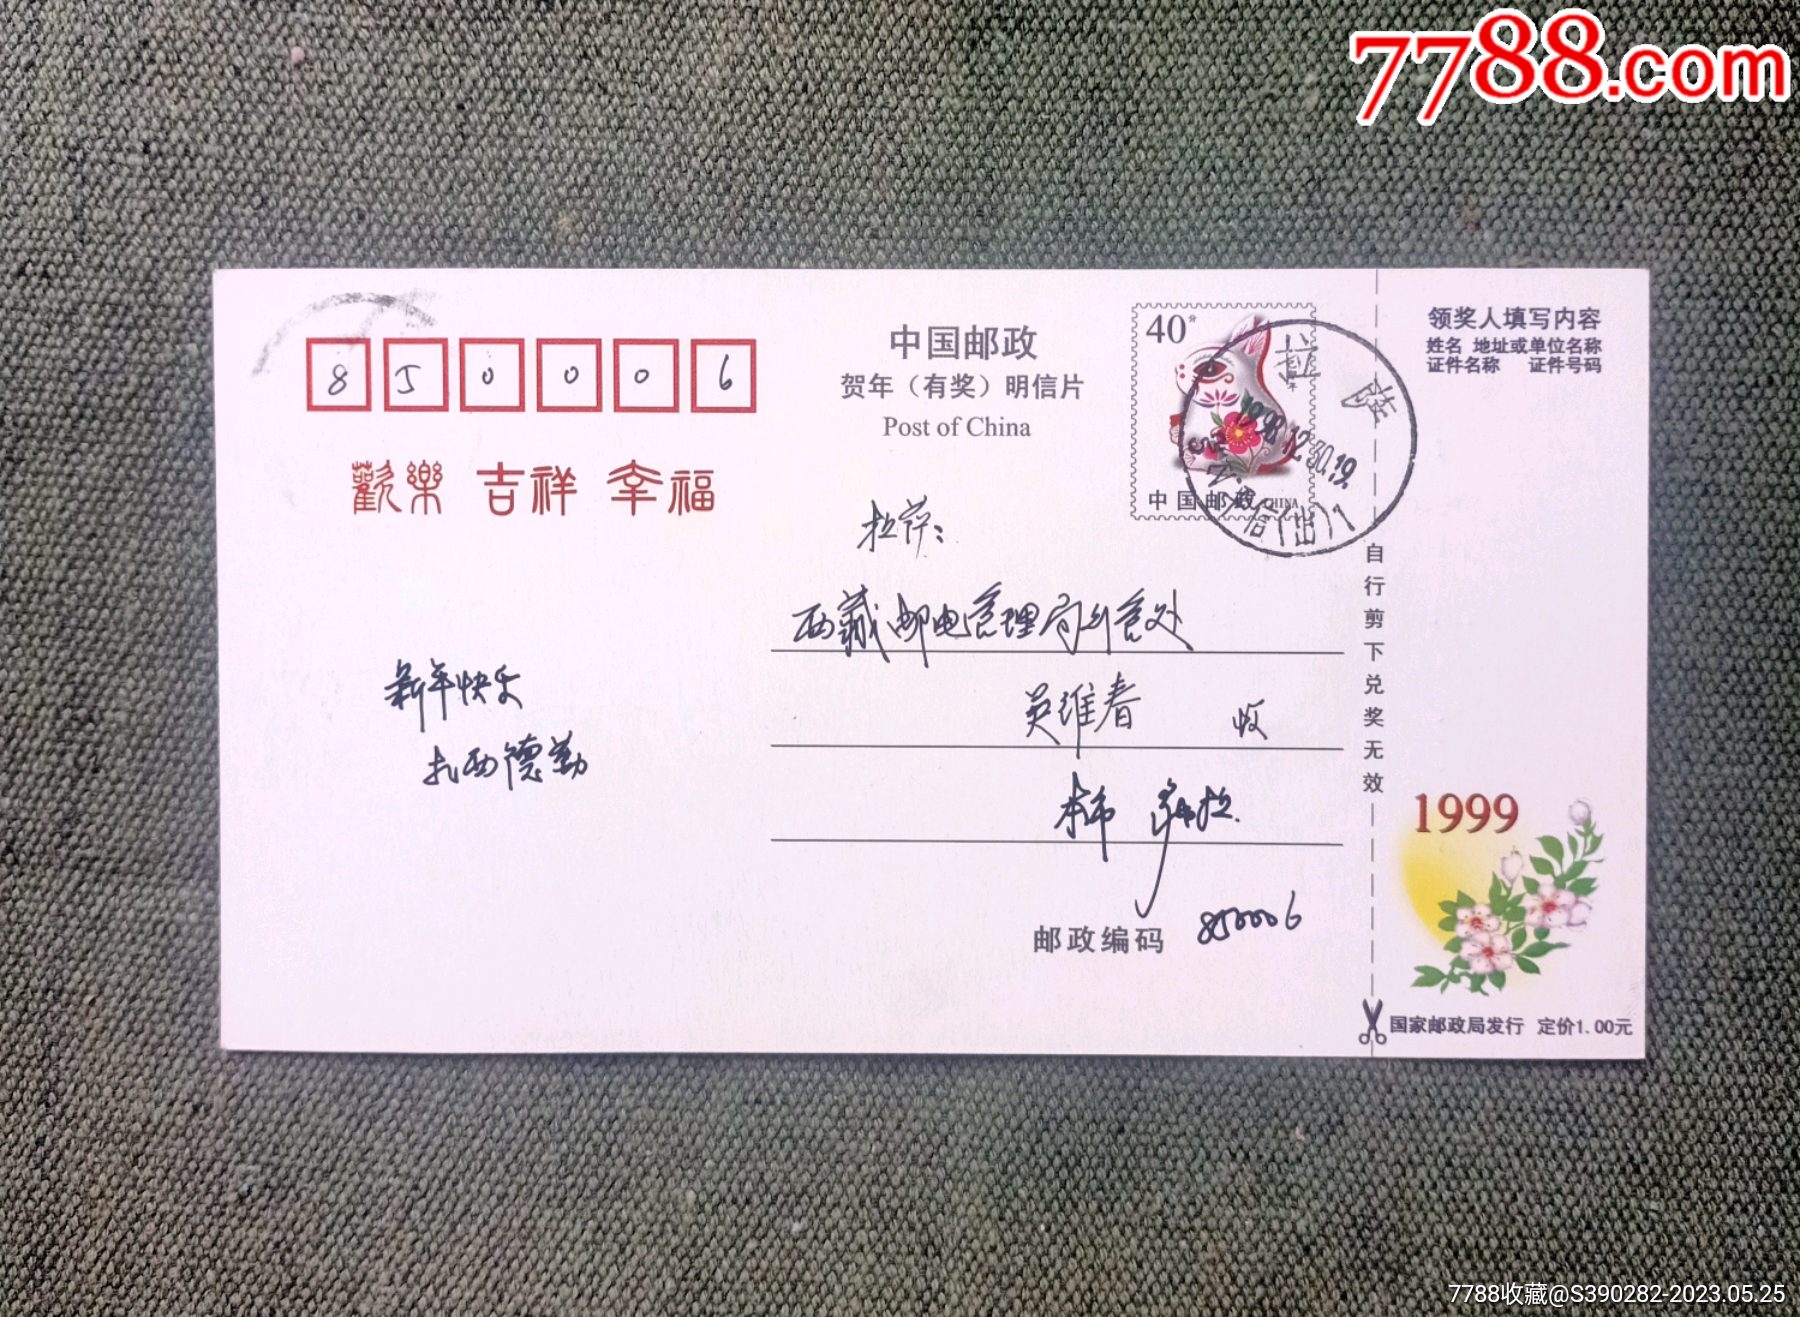 7788.com
850006
中国邮政
贺年（有奖）明信片
Post of China
歡樂 吉祥 幸福
40分
中国邮政 CHINA
1998.12.30.19
领奖人填写内容
姓名 地址或单位名称
证件名称 证件号码
拉萨:
西藏邮电管理局
维春 收
新年快乐
扎西德勒
邮政编码 850006
自行剪下兑奖无效
1999
国家邮政局发行 定价1.00元
7788收藏@S390282-2023.05.25